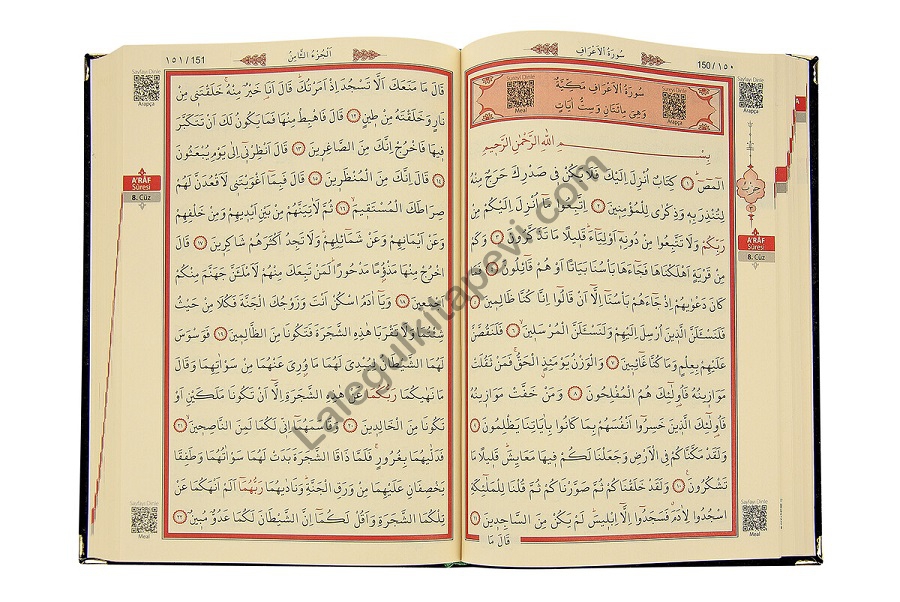 150 / ١٥٠
سُورَةُ اْلاَعْرَافِ
Sayfayı Dinle
Arapça
Sureyi Dinle
Meal
سُورَةُ اْلاَعْرَافِ مَكِّيَّةٌ
وَهِىَ مِائَتَانِ وَسِتُّ اٰيَاتٍ
Sureyi Dinle
Arapça
بِسْــــمِ اللّٰهِ الرَّحْمٰنِ الرَّحٖيمِ
الٓمٓصٓ ١ كِتَابٌ اُنْزِلَ اِلَيْكَ فَلَا يَكُنْ فٖى صَدْرِكَ حَرَجٌ مِنْهُ
لِتُنْذِرَ بِهٖ وَذِكْرٰى لِلْمُؤْمِنٖينَ ٢ اِتَّبِعُوا مَٓا اُنْزِلَ اِلَيْكُمْ مِنْ
رَبِّكُمْ وَلَا تَتَّبِعُوا مِنْ دُونِهٖٓ اَوْلِيَٓاءَ قَلٖيلًا مَا تَذَكَّرُونَ ٣ وَكَمْ
مِنْ قَرْيَةٍ اَهْلَكْنَاهَا فَجَٓاءَهَا بَاْسُنَا بَيَاتًا اَوْ هُمْ قَٓائِلُونَ ٤ فَمَا
كَانَ دَعْوٰيهُمْ اِذْ جَٓاءَهُمْ بَاْسُنَٓا اِلَّٓا اَنْ قَالُٓوا اِنَّا كُنَّا ظَالِمٖينَ ٥
فَلَنَسْـَٔلَنَّ الَّذٖينَ اُرْسِلَ اِلَيْهِمْ وَلَنَسْـَٔلَنَّ الْمُرْسَلٖينَ ٦ فَلَنَقُصَّنَّ
عَلَيْهِمْ بِعِلْمٍ وَمَا كُنَّا غَٓائِبٖينَ ٧ وَالْوَزْنُ يَوْمَئِذٍ الْحَقُّ فَمَنْ ثَقُلَتْ
مَوَازٖينُهُ فَاُولٰٓئِكَ هُمُ الْمُفْلِحُونَ ٨ وَمَنْ خَفَّتْ مَوَازٖينُهُ
فَاُولٰٓئِكَ الَّذٖينَ خَسِرُٓوا اَنْفُسَهُمْ بِمَا كَانُوا بِاٰيَاتِنَا يَظْلِمُونَ ٩
وَلَقَدْ مَكَّنَّاكُمْ فِى الْاَرْضِ وَجَعَلْنَا لَكُمْ فٖيهَا مَعَايِشَ قَلٖيلًا مَا
تَشْكُرُونَ ١٠ وَلَقَدْ خَلَقْنَاكُمْ ثُمَّ صَوَّرْنَاكُمْ ثُمَّ قُلْنَا لِلْمَلٰٓئِكَةِ
اسْجُدُوا لِاٰدَمَ فَسَجَدُٓوا اِلَّٓا اِبْلٖيسَ لَمْ يَكُنْ مِنَ السَّاجِدٖينَ ١١
قَالَ مَا
حِزْبُ
A'RÂF
Sûresi
8. Cüz
Sayfayı Dinle
Meal
١٥١ / 151
اَلْجُزْءُ الثَّامِنُ
Sayfayı Dinle
Arapça
قَالَ مَا مَنَعَكَ اَلَّا تَسْجُدَ اِذْ اَمَرْتُكَ قَالَ اَنَا خَيْرٌ مِنْهُ خَلَقْتَنٖى مِنْ
نَارٍ وَخَلَقْتَهُ مِنْ طٖينٍ ١٢ قَالَ فَاهْبِطْ مِنْهَا فَمَا يَكُونُ لَكَ اَنْ تَتَكَبَّرَ
فٖيهَا فَاخْرُجْ اِنَّكَ مِنَ الصَّاغِرٖينَ ١٣ قَالَ اَنْظِرْنٖٓى اِلٰى يَوْمِ يُبْعَثُونَ
١٤ قَالَ اِنَّكَ مِنَ الْمُنْظَرٖينَ ١٥ قَالَ فَبِمَٓا اَغْوَيْتَنٖى لَاَقْعُدَنَّ لَهُمْ
صِرَاطَكَ الْمُسْتَقٖيمَ ١٦ ثُمَّ لَاٰتِيَنَّهُمْ مِنْ بَيْنِ اَيْدٖيهِمْ وَمِنْ خَلْفِهِمْ
وَعَنْ اَيْمَانِهِمْ وَعَنْ شَمَٓائِلِهِمْ وَلَا تَجِدُ اَكْثَرَهُمْ شَاكِرٖينَ ١٧ قَالَ
اخْرُجْ مِنْهَا مَذْؤُمًا مَدْحُورًا لَمَنْ تَبِعَكَ مِنْهُمْ لَاَمْلَـَٔنَّ جَهَنَّمَ مِنْكُمْ
اَجْمَعٖينَ ١٨ وَيَٓا اٰدَمُ اسْكُنْ اَنْتَ وَزَوْجُكَ الْجَنَّةَ فَكُلَا مِنْ حَيْثُ
شِئْتُمَا وَلَا تَقْرَبَا هٰذِهِ الشَّجَرَةَ فَتَكُونَا مِنَ الظَّالِمٖينَ ١٩ فَوَسْوَسَ
لَهُمَا الشَّيْطَانُ لِيُبْدِىَ لَهُمَا مَا وُرِىَ عَنْهُمَا مِنْ سَوْاٰتِهِمَا وَقَالَ
مَا نَهٰيكُمَا رَبُّكُمَا عَنْ هٰذِهِ الشَّجَرَةِ اِلَّٓا اَنْ تَكُونَا مَلَكَيْنِ اَوْ
تَكُونَا مِنَ الْخَالِدٖينَ ٢٠ وَقَاسَمَهُمَٓا اِنّٖى لَكُمَا لَمِنَ النَّاصِحٖينَ ٢١
فَدَلّٰيهُمَا بِغُرُورٍ فَلَمَّا ذَاقَا الشَّجَرَةَ بَدَتْ لَهُمَا سَوْاٰتُهُمَا وَطَفِقَا
يَخْصِفَانِ عَلَيْهِمَا مِنْ وَرَقِ الْجَنَّةِ وَنَادٰيهُمَا رَبُّهُمَٓا اَلَمْ اَنْهَكُمَا عَنْ
تِلْكُمَا الشَّجَرَةِ وَاَقُلْ لَكُمَٓا اِنَّ الشَّيْطَانَ لَكُمَا عَدُوٌّ مُبٖينٌ ٢٢
A'RÂF
Sûresi
8. Cüz
Sayfayı Dinle
Meal
Lalegulkitapevi.com